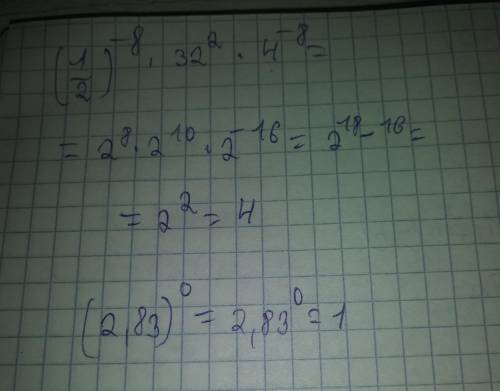 (1/2)^-8 · 32^2 · 4^-8 =
= 2^8 · 2^10 · 2^-16 = 2^18-16 =
= 2^2 = 4
(2,83)^0 = 2,83^0 = 1